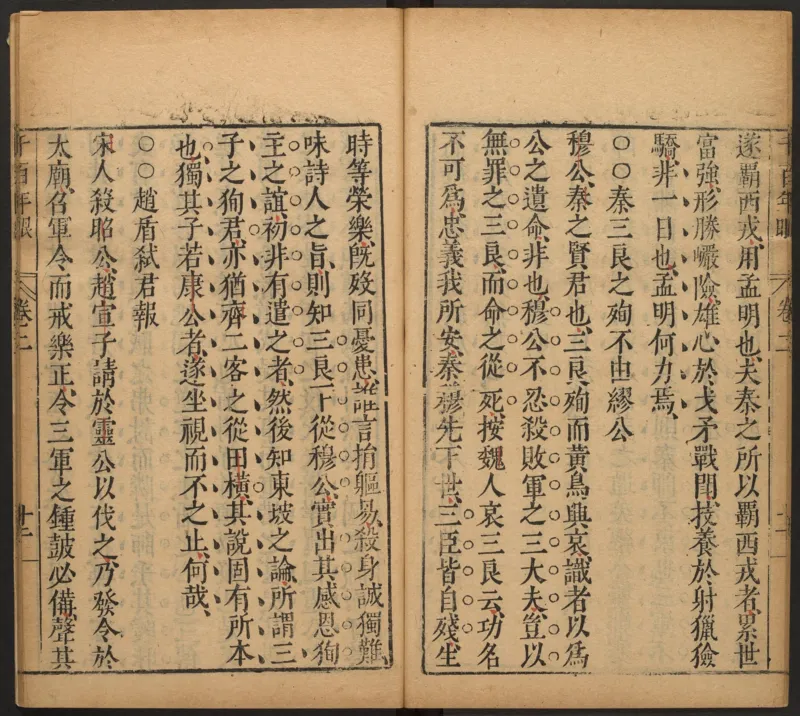 遂霸西戎用孟明也夫秦之所以霸西戎者累世
富強形勝巖險雄心於戈矛戰鬥技養於射獵獫
驕非一日也孟明何力焉
○○秦三良之殉不由繆公
穆公秦之賢君也三良殉而黃鳥興哀識者以爲
公之遺命非也穆公不忍殺敗軍之三大夫豈以
無罪之三良而命之從死按魏人哀三良云功名
不可爲忠義我所安秦穆先下世三臣皆自殘生
時等榮樂既歿同憂患誰言捐軀易殺身誠獨難
味詩人之旨則知三良下從穆公實出其感恩徇
主之誼初非有遣之者然後知東坡之論所謂三
子之狥君亦猶齊二客之從田橫其說固有所本
也獨其子若康公者遂坐視而不之止何哉
○○趙盾弑君報
宋人殺昭公趙宣子請於靈公以伐之乃發令於
太廟召軍令而戒樂正令三軍之鍾鼓必備聲其
千百年眼 卷二